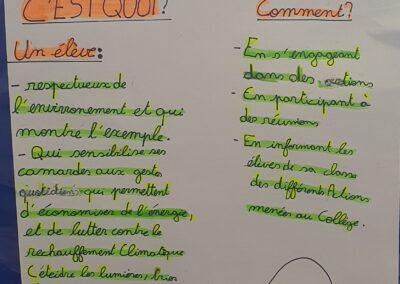 C'EST QUOI?
Un élève:
- respectueux de
l'environement et qui
montre l'exemple.
- Qui sensibilise ses
camardes aux gestes
quotidiens qui permettent
d'économiser de l'énergie,
et de lutter contre le
rechauffement Climatique
(éteidre les lumières, trier
Comment?
- En s'engageant
dans des actions
- En participant à
des réunions
- En informant les
élèves de sa classe
des différents Actions
menées au Collège.